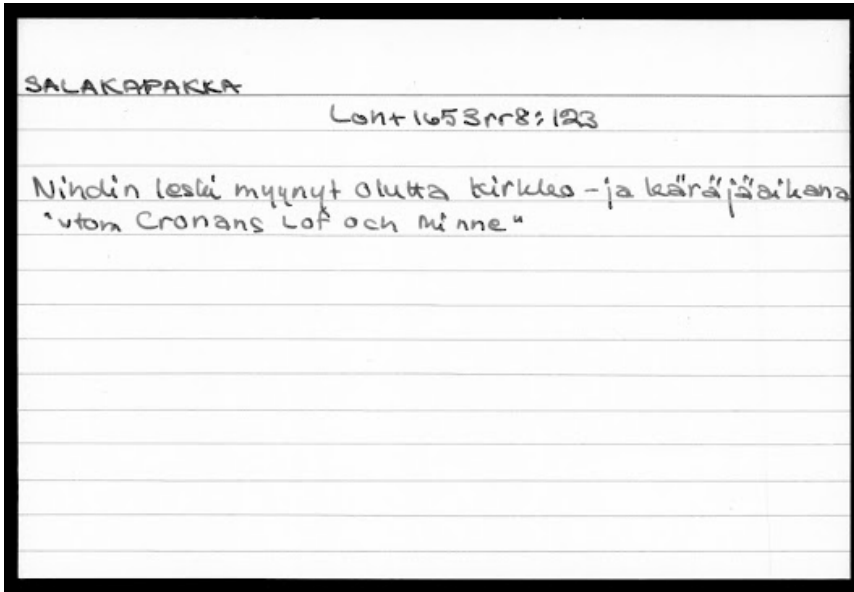 SALAKAPAKKA
Loht 1653 rr8:123
Nihdin leski myynyt olutta kirkko- ja käräjäaikana
"utom Cronans Lof och Minne"